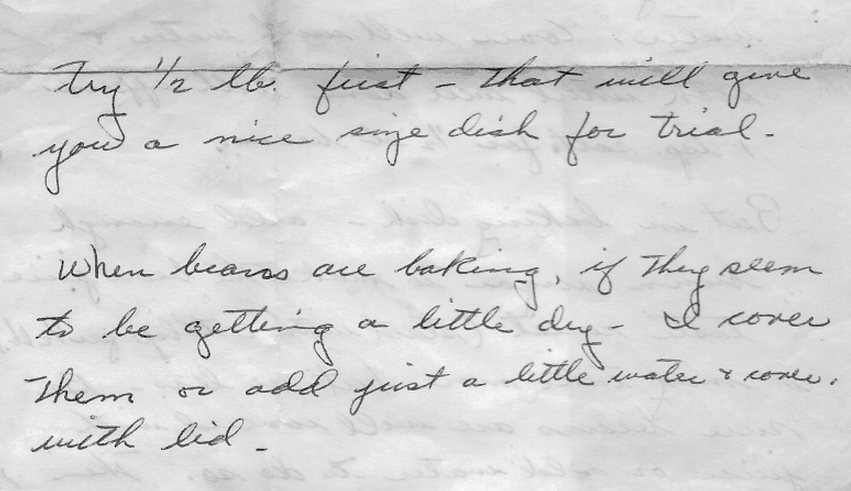 try 1/2 lb. first - that will give
you a nice size dish for trial -
When beans are baking, if they seem
to be getting a little dry - I cover
them or add just a little water & cover.
with lid -